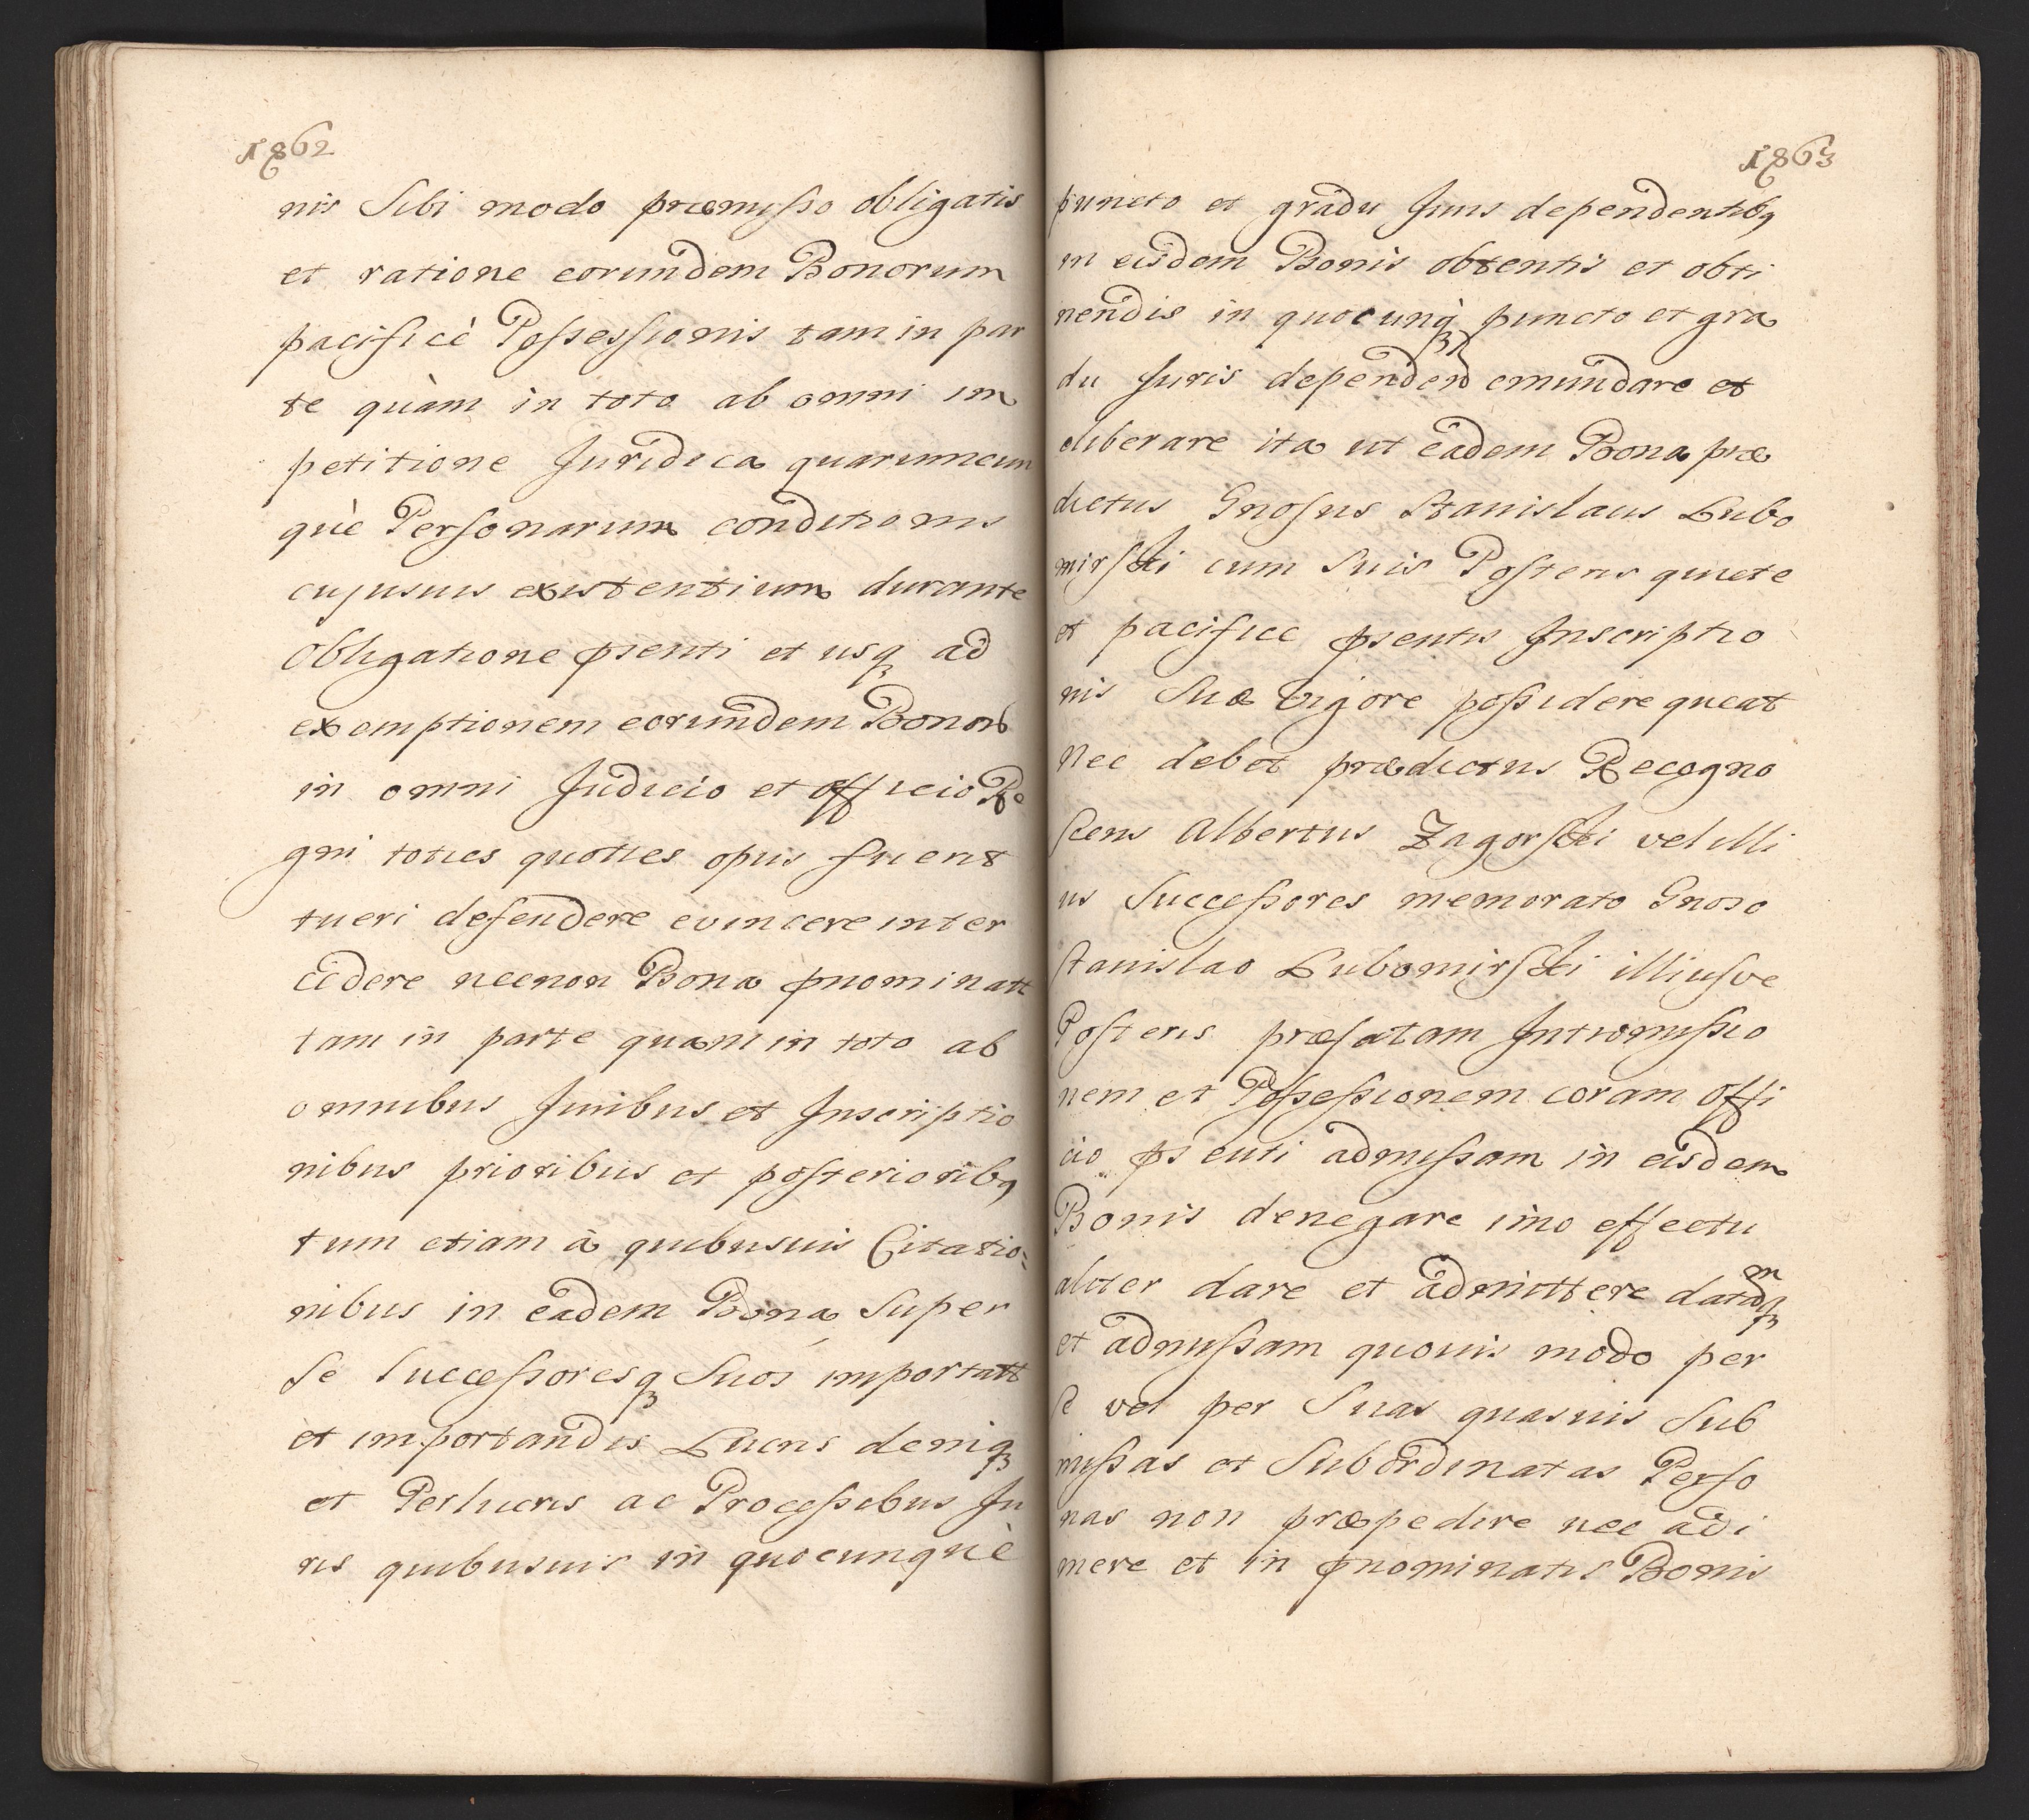 1862
nis Sibi modo præmisso obligatis
et ratione eorundem Bonorum
pacificè Possessionis tam in par
te quàm in toto ab omni im
petitione Juridica quarumcun
què Personarum conditionis
cujusvis existentium durante
obligatione pſenti et usq3 ad
exemptionem eorundem Bonor
in omni Judicio et officio Re
gni toties quoties opus fuerit
tueri defendere evincere inter
cedere necnon Bona pnominatt
tam in parte quam in toto ab
omnibus Juribus et Inscriptio
nibus prioribus et posteriorib9
tum etiam à quibusvis Citatio=
nibus in eadem Bona Super
Se Successoresq3 Suos importatt
et importandis Lucris deniq3
et Perlucris ac Processibus Ju
ris quibusvis in quocunquè
1863
puncto et gradu Juris dependentib9
in eisdem Bonis obtentis et obti
nendis in quocunq3 puncto et gra
du Juris dependen emundare et
eliberare ita ut eadem Bona præ
dictus Gnosus Stanislaus Lubo
mirski cum Suis Posteris quiete
et pacifice pſentis Inscriptio
nis Suæ vigore possidere queat
Nec debet prædictus Recogno
scens Albertus Zagorski vel illi
us Successores memorato Gnoso
Stanislao Lubomirski illiusve
Posteris præfatam Intromissio
nem et Possessionem coram Offi
cio pſenti admissam in eisdem
Bonis denegare imo effectu
aliter dare et admittere datamq3
et admissam quovis modo per
se vel per Suas quasvis Sub
missas et Subordinatas Perso
nas non præpedire nec adi
mere et in pnominatis Bonis